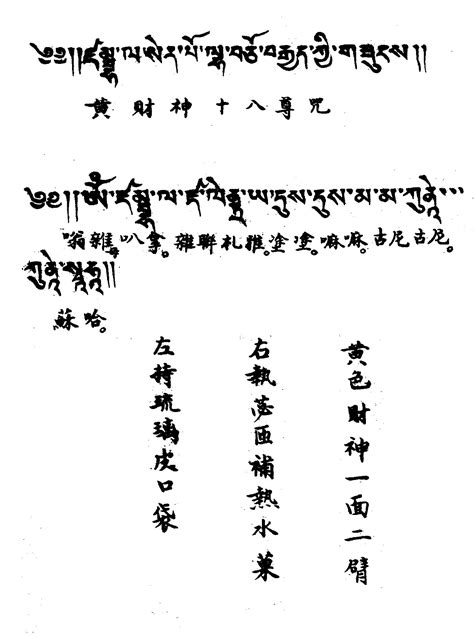 ༄༅།།ཛམྦྷ་ལ་སེར་པོ་ལྷ་བཅོ་བརྒྱད་ཀྱི་གཟུངས།།
黃財神十八尊咒
༄༅།།ཨོཾ་ཛམྦྷ་ལ་ཛ་ལེནྡྲ་ཡ་དུས་དུས་མ་མ་ཀུནྡེ་...
嗡雜母叭拿。雜聯札雅。塗塗。嘛嘛。古尼古尼。
ཀུནྡེ་སྭཱཧཱ།།
蘇哈。
黃色財神一面二臂
右執苾匝補熱水菓
左持琉璃皮口袋